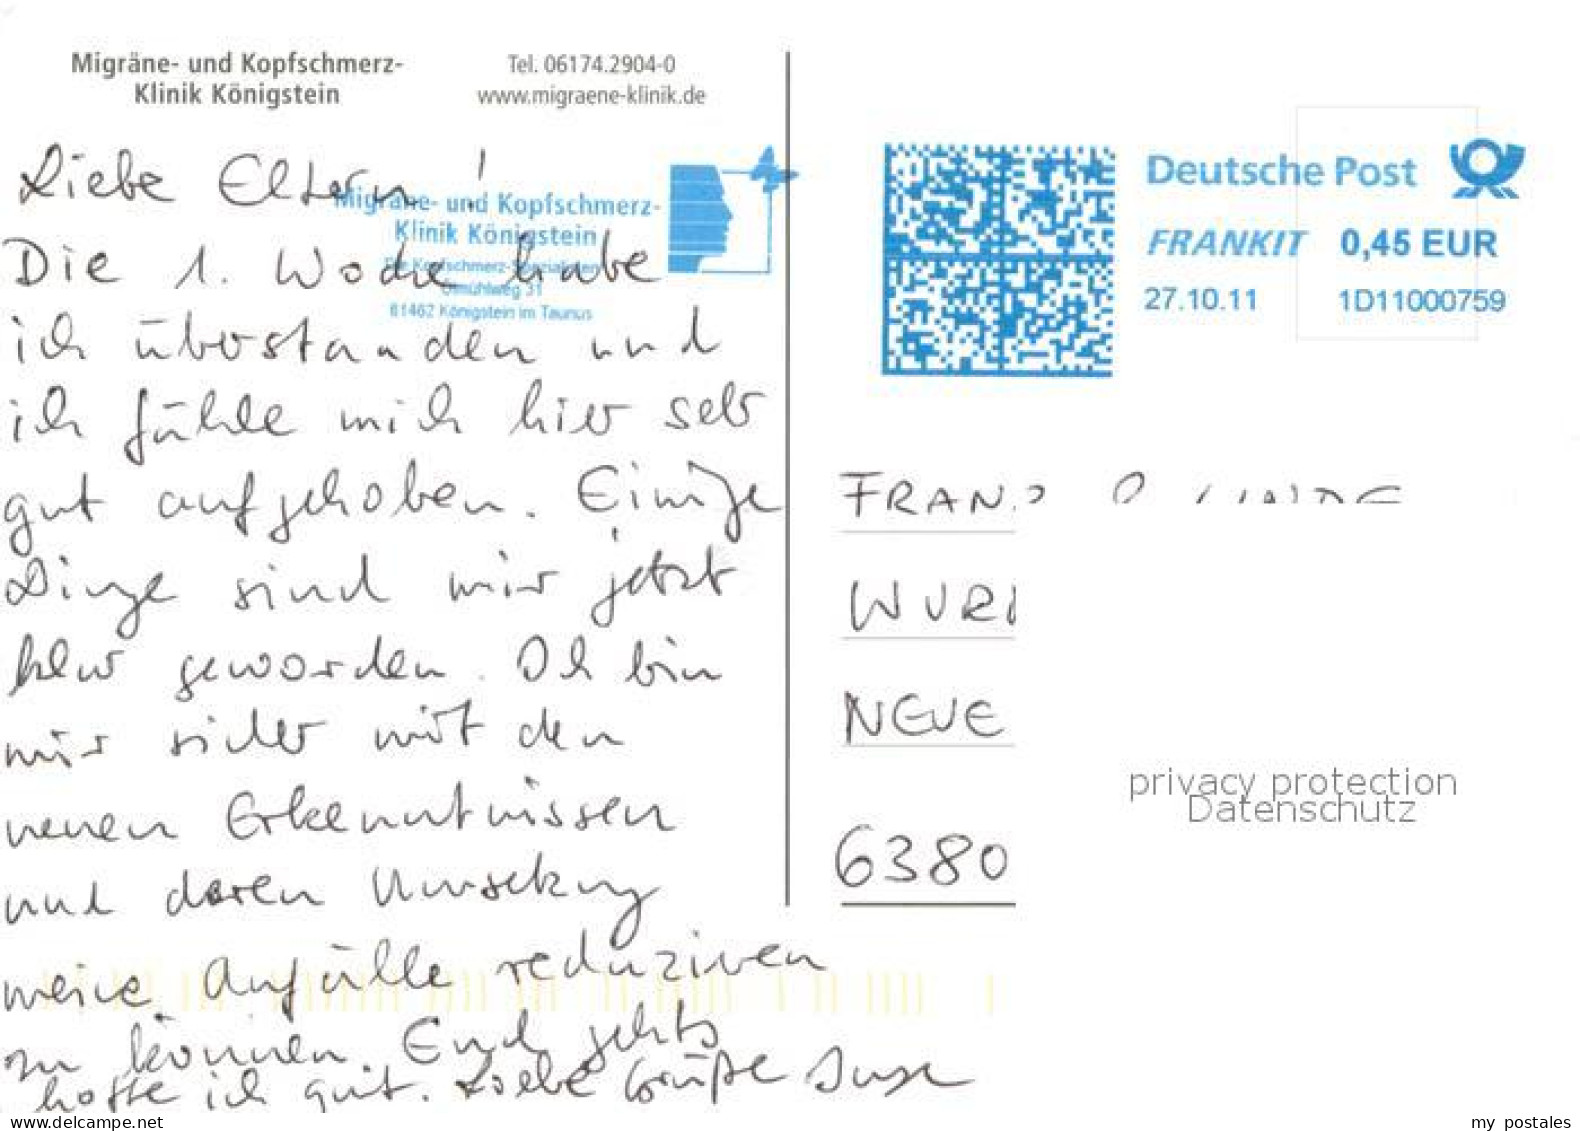 Migräne- und Kopfschmerz-
Klinik Königstein
Tel. 06174.2904-0
www.migraene-klinik.de
Liebe Eltern!
Die 1. Woche habe
ich überstanden und
ich fühle mich hier sehr
gut aufgehoben. Einige
Dinge sind mir jetzt
klar geworden. Ich bin
mir sicher mit den
neuen Erkenntnissen
und deren Umsetzung
meine Anfälle reduzieren
zu können. Euch gehts
hoffe ich gut. Liebe Grüße Suse
Migräne- und Kopfschmerz-
Klinik Königstein
Die Kopfschmerz-Spezialisten
Ölmühlweg 31
61462 Königstein im Taunus
Deutsche Post
FRANKIT 0,45 EUR
27.10.11 1D11000759
NEUE
6380
privacy protection
Datenschutz
www.delcampe.net
my postales